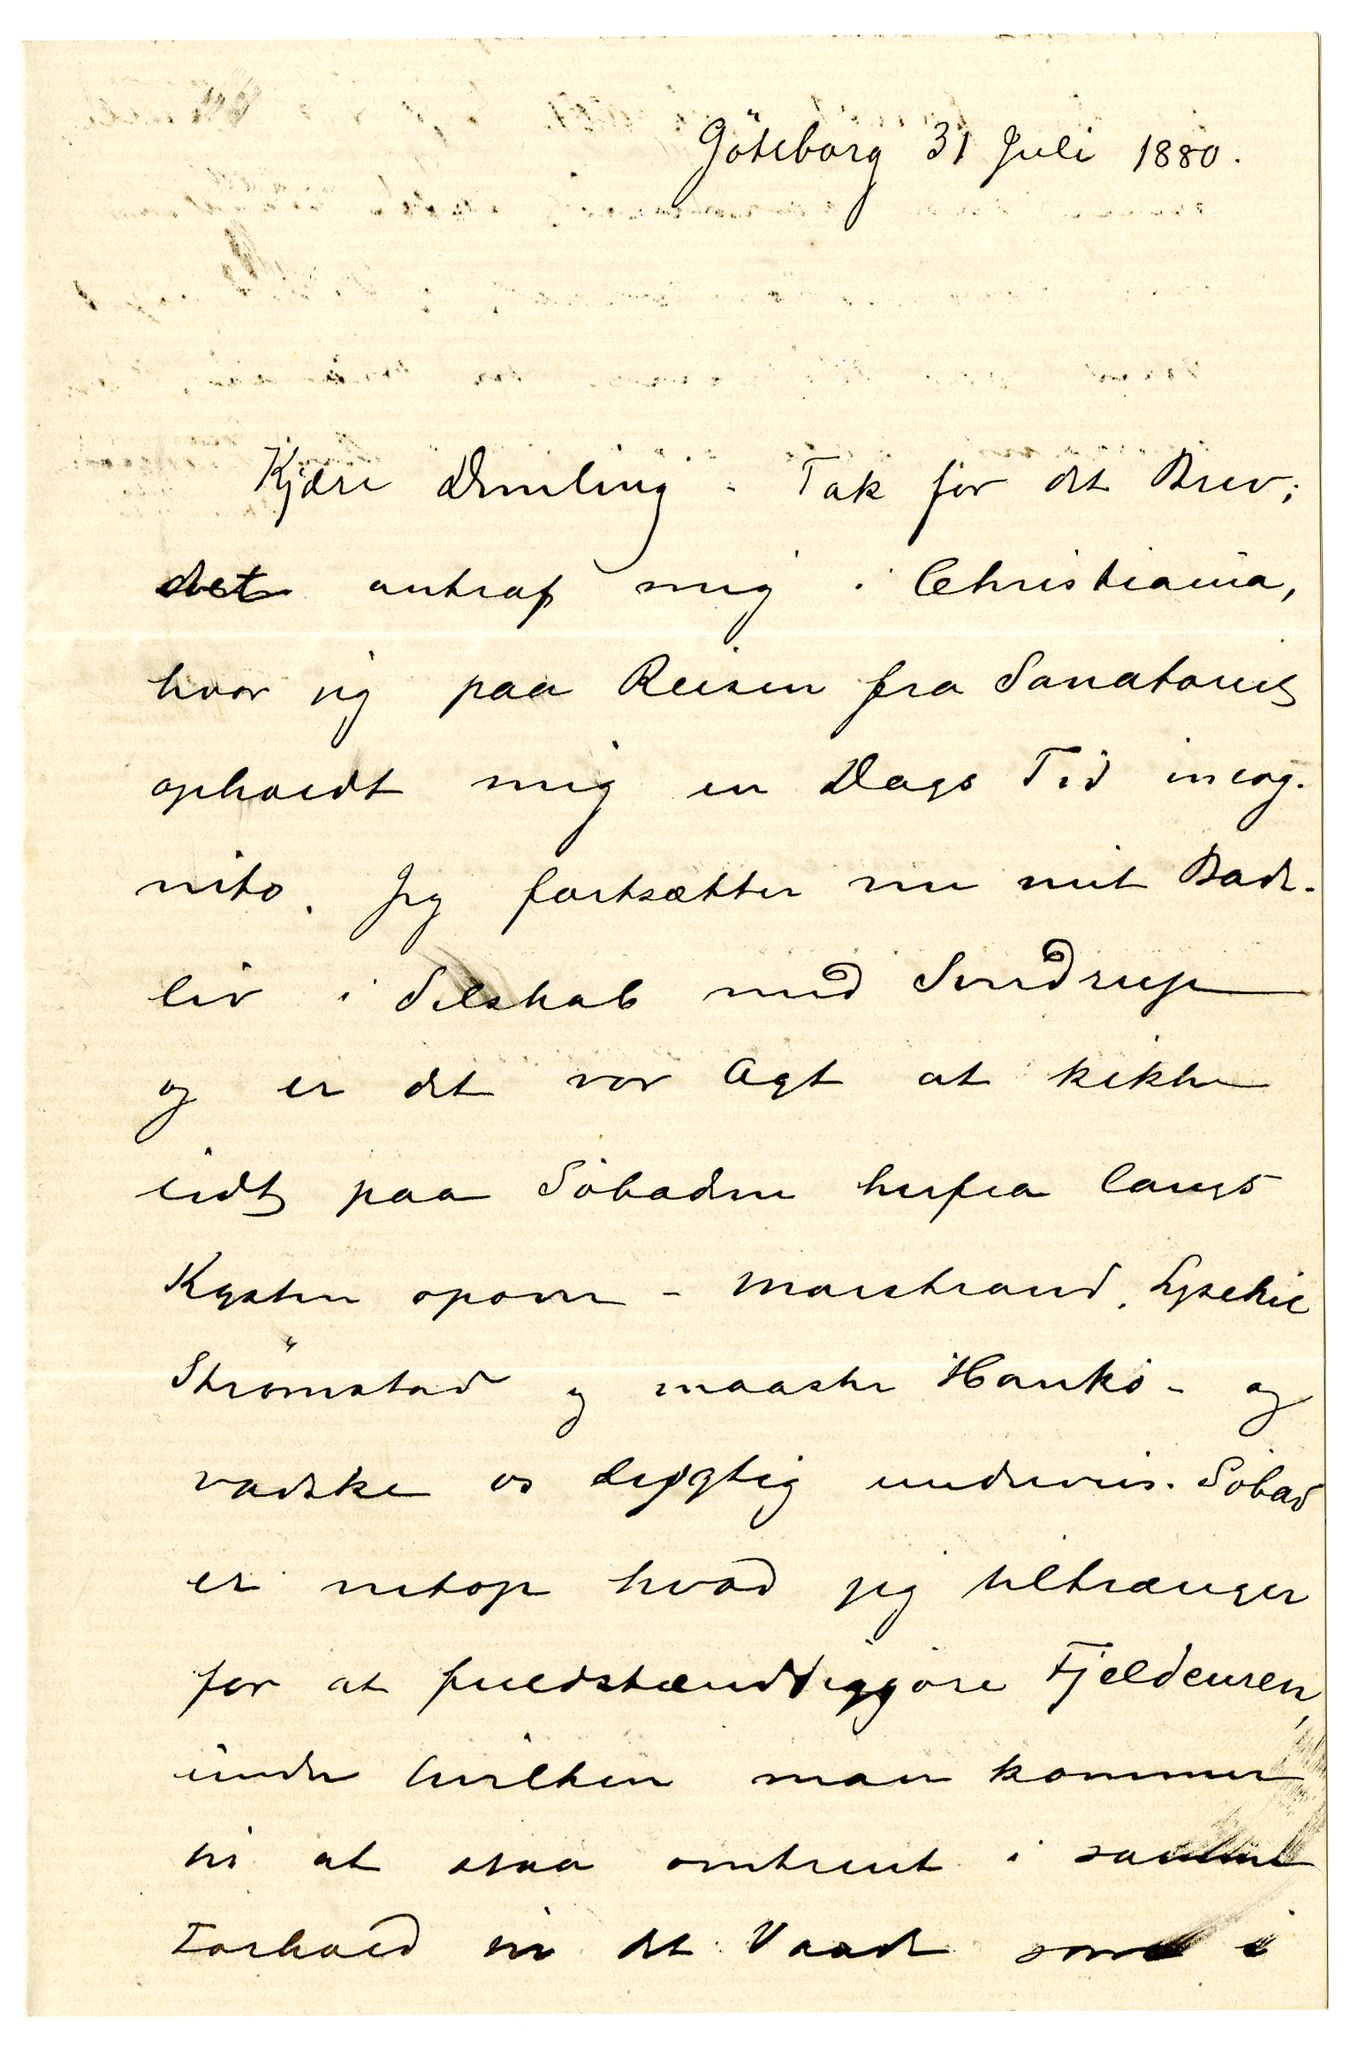 Göteborg 31 Juli 1880.
Kjære Drmling. Tak for dit Brev;
det antraf mig i Christiania,
hvor jeg paa Reisen fra Sanatoriet
opholdt mig en Dags Tid incog-
nito. Jeg fortsætter nu mit Bade-
liv i Selskab med Smidrup
og er det vor Agt at kikke
lidt paa Söbadene herfra langs
Kysten opover - Marstrand, Lysekil
Strömstad og maaske Hankö - og
vadske os dygtig underveis. Söbad
er netop hvad jeg tiltrænger
for at fuldstændiggjöre Fjeldcuren,
under hvilken man kommer
til at staa omtrent i samme
Forhold til det Vaade som i